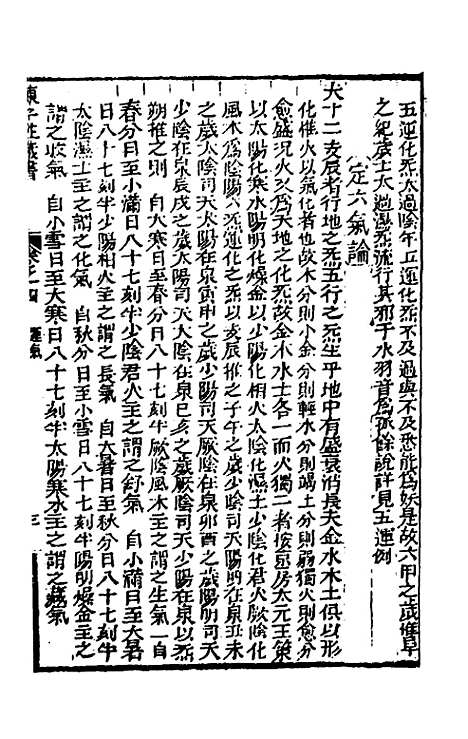 五運化炁太過陰年五運化炁不及過與不及悉能爲妖是故六甲之歲惟阜
之紀歲土太過濕炁流行其邪于水羽音爲孤餘說詳見五運例
定六氣論
夫十二支辰者行地之炁五行之炁生乎地中有盛衰消長夫金水木土俱以形
化惟火以氣化者也故木分則小金分則輕水分則竭土分則弱獨火則愈分
愈盛況火又爲天地之化炁故金木水土各一而火獨二者按京房太元王策
以太陽化寒水陽明化燥金以少陽化相火太陰化濕土少陰化君火厥陰化
風木爲陰陽六炁運化之炁以支辰推之子午之歲少陰司天陽明在泉丑未
之歲太陰司天太陽在泉寅申之歲少陽司天厥陰在泉卯酉之歲陽明司天
少陰在泉辰戌之歲太陽司天太陰在泉巳亥之歲厥陰司天少陽在泉以炁
朔推之則 自大寒日至春分日八十七刻半厥陰風木主之謂之生氣一自
春分日至小滿日八十七刻半少陰君火主之謂之舒氣 自小滿日至大暑
日八十七刻半少陽相火主之謂之長氣 自大暑日至秋分日八十七刻半
太陰濕土主之謂之化氣 自秋分日至小雪日八十七刻半陽明燥金主之
謂之收氣 自小雪日至大寒日八十七刻半太陽寒水主之謂之藏氣
陳子性藏書
卷之四 運氣
三